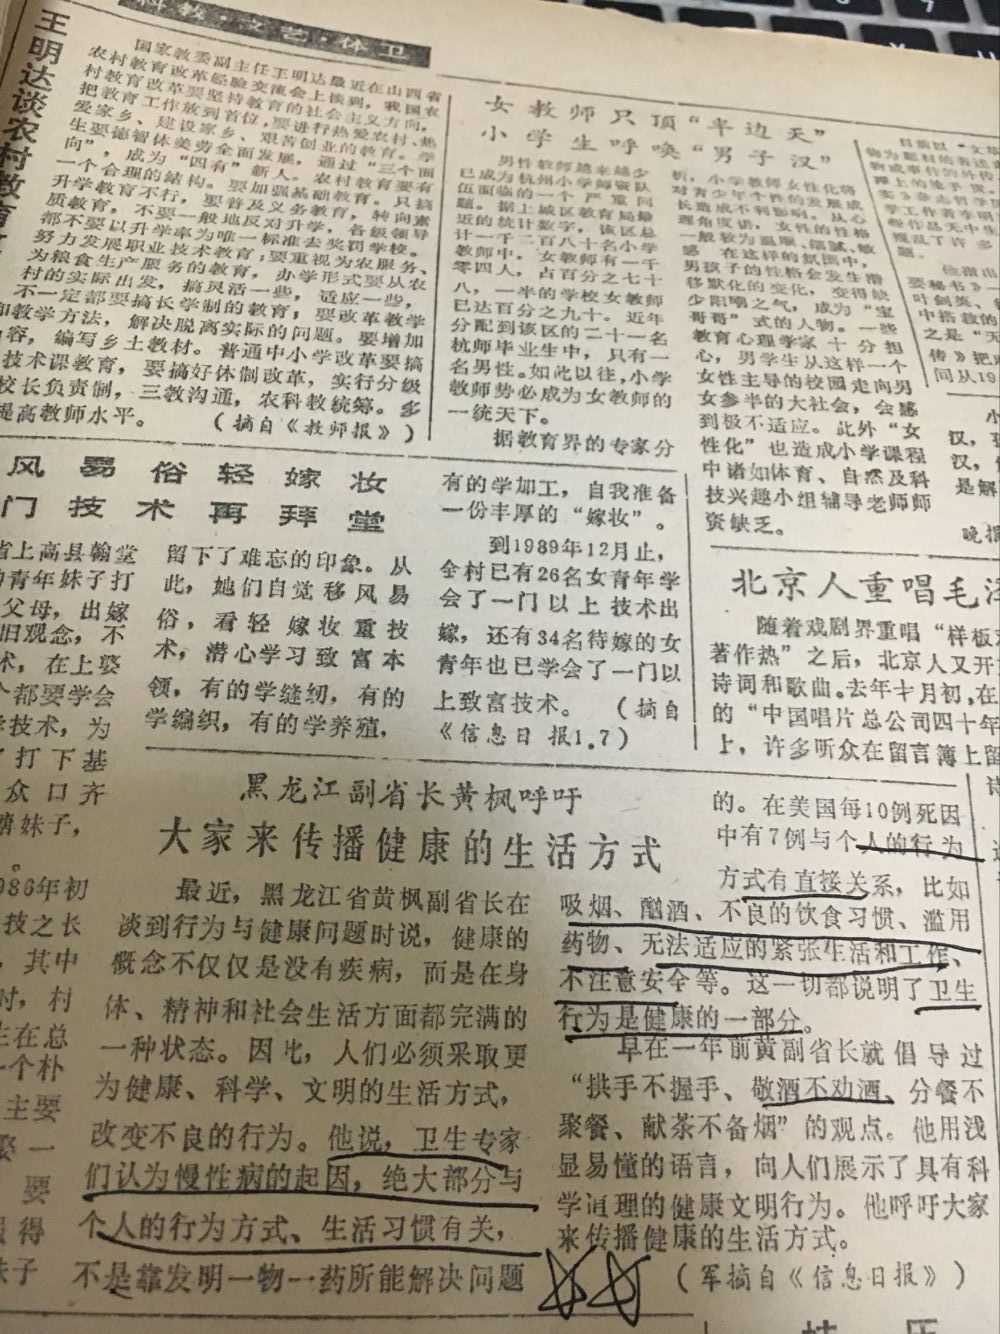 科教·文艺·体卫
王明达谈农村教育
国家教委副主任王明达最近在山西省
农村教育改革经验交流会上谈到，我国农
村教育改革要坚持教育的社会主义方向，
把教育工作放到首位，要进行热爱农村、热
爱家乡、建设家乡、艰苦创业的教育。学
生要德智体美劳全面发展，通过“三个面
向”，成为“四有”新人。农村教育要有
一个合理的结构。要加强基础教育。只搞
升学教育不行，要普及义务教育，转向素
质教育，不要一般地反对升学，各级领导
都不要以升学率为唯一标准去奖罚学校。
努力发展职业技术教育；要重视为农服务、
为粮食生产服务的教育，办学形式要从农
村的实际出发，搞灵活一些，适应一些，
不一定都要搞长学制的教育；要改革教学
和教学方法，解决脱离实际的问题。要增加
容，编写乡土教材。普通中小学改革要搞
技术课教育，要搞好体制改革，实行分级
校长负责制，三教沟通，农科教统筹。多
提高教师水平。（摘自《教师报》）
女教师只顶“半边天”
小学生呼唤“男子汉”
男性教师越来越少
已成为杭州小学师资队
伍面临的一个严重问
题。据上城区教育局最
近的统计数字，该区总
计一千二百八十名小学
教师中，女教师有一千
零四人，占百分之七十
八，一半的学校女教师
已达百分之九十。近年
分配到该区的二十一名
杭师毕业生中，只有一
名男性。如此以往，小学
教师势必成为女教师的
一统天下。
据教育界的专家分
析，小学教师女性化将
对青少年个性的发展成
长造成不利影响。从心
理角度讲，女性的性格
一般较为温顺、细腻、敏
感。在这样的氛围中，
男孩子的性格会发生潜
移默化的变化，变得缺
少阳刚之气，成为“宝
哥哥”式的人物。一些
教育心理学家十分担
心，男学生从这样一个
女性主导的校园走向男
女参半的大社会，会感
到极不适应。此外“女
性化”也造成小学课程
中诸如体育、自然及科
技兴趣小组辅导老师师
资缺乏。
风易俗轻嫁妆
门技术再拜堂
省上高县翰堂
青年妹子打
父母，出嫁
旧观念，不
术，在上娶
都要学会
技术，为
打下基
众口齐
妹子，
986年初
技之长
，其中
时，村
生在总
个朴
主要
聚一
要
得
妹子
留下了难忘的印象。从
此，她们自觉移风易
俗，看轻嫁妆重技
术，潜心学习致富本
领，有的学缝纫，有的
学编织，有的学养殖，
有的学加工，自我准备
一份丰厚的“嫁妆”。
到1989年12月止，
全村已有26名女青年学
会了一门以上技术出
嫁，还有34名待嫁的女
青年也已学会了一门以
上致富技术。（摘自
《信息日报1.7）
北京人重唱毛泽
随着戏剧界重唱“样板
著作热”之后，北京人又开
诗词和歌曲。去年十月初，在
的“中国唱片总公司四十年
上，许多听众在留言簿上留
黑龙江副省长黄枫呼吁
大家来传播健康的生活方式
最近，黑龙江省黄枫副省长在
谈到行为与健康问题时说，健康的
概念不仅仅是没有疾病，而是在身
体、精神和社会生活方面都完满的
一种状态。因此，人们必须采取更
为健康、科学、文明的生活方式，
改变不良的行为。他说，卫生专家
们认为慢性病的起因，绝大部分与
个人的行为方式、生活习惯有关，
不是靠发明一物一药所能解决问题
的。在美国每10例死因
中有7例与个人的行为
方式有直接关系，比如
吸烟、酗酒、不良的饮食习惯、滥用
药物、无法适应的紧张生活和工作、
不注意安全等。这一切都说明了卫生
行为是健康的一部分。
早在一年前黄副省长就倡导过
“拱手不握手、敬酒不劝酒、分餐不
聚餐、献茶不备烟”的观点。他用浅
显易懂的语言，向人们展示了具有科
学道理的健康文明行为。他呼吁大家
来传播健康的生活方式。
（军摘自《信息日报》）